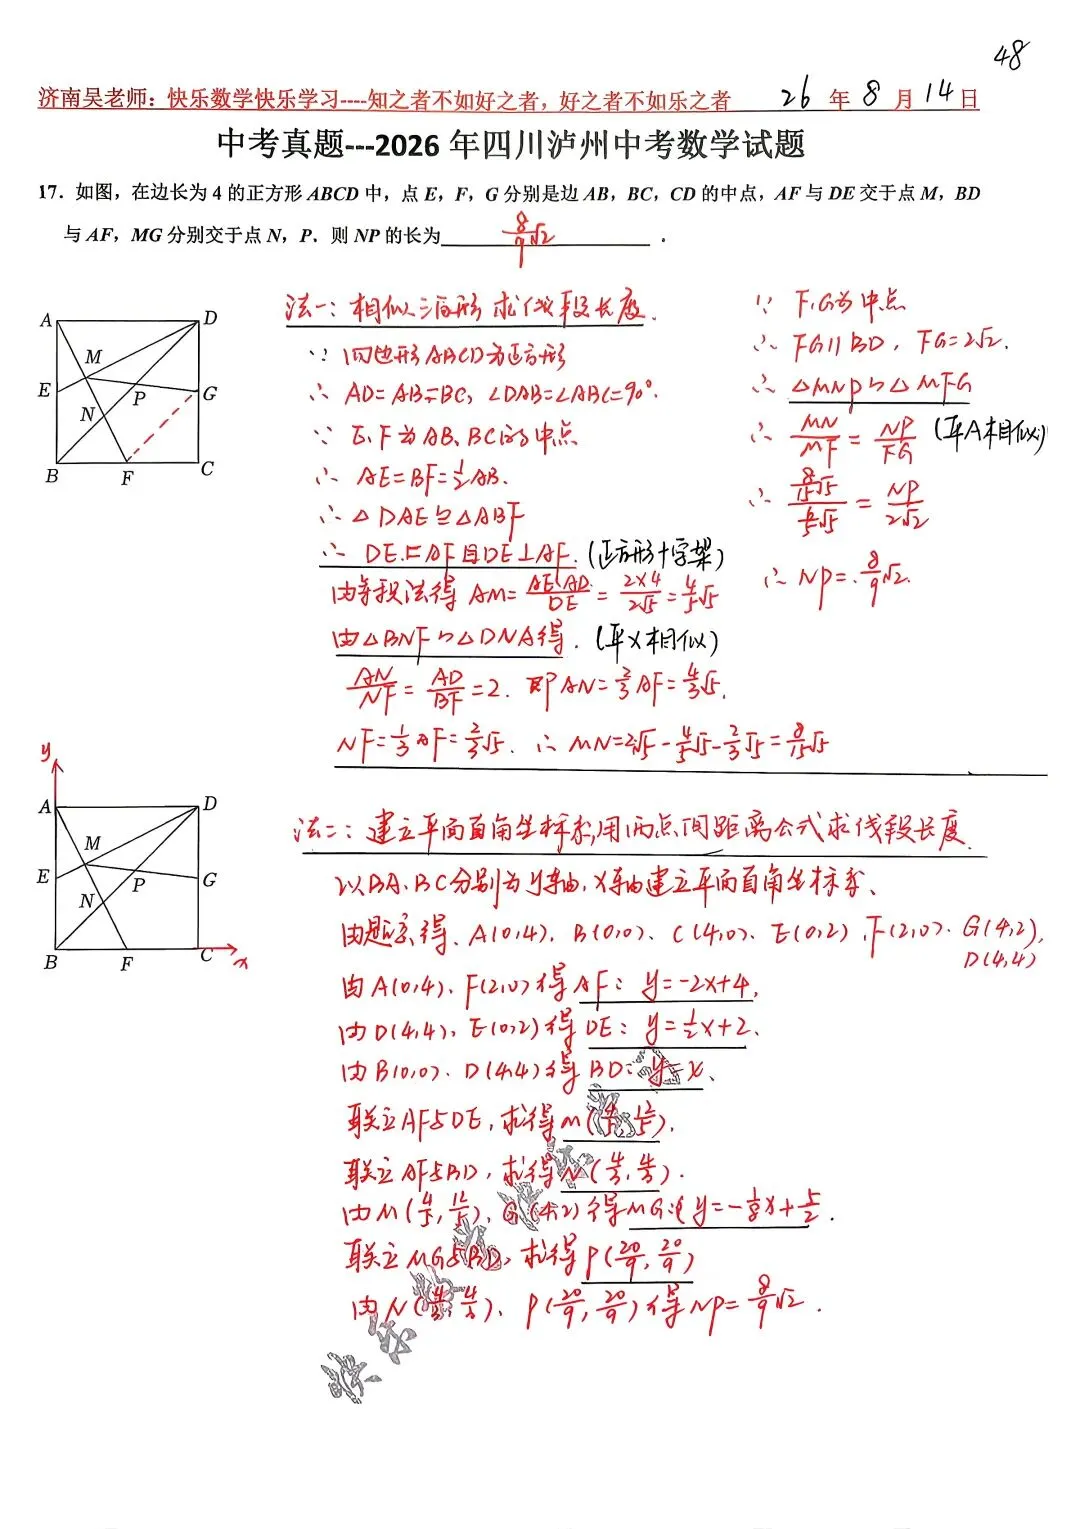 48
济南吴老师：快乐数学快乐学习----知之者不如好之者，好之者不如乐之者 26 年 8 月 14 日
中考真题---2026 年四川泸州中考数学试题
17．如图，在边长为 4 的正方形 ABCD 中，点 E，F，G 分别是边 AB，BC，CD 的中点，AF 与 DE 交于点 M，BD
与 AF，MG 分别交于点 N，P．则 NP 的长为 8/9√2 ．
A D
M
E G
N P
B F C
法一：相似三角形求线段长度.
∵ 四边形ABCD为正方形
∴ AD=AB=BC, ∠DAB=∠ABC=90°.
∵ E、F为AB、BC的中点
∴ AE=BF=1/2AB.
∴ △DAE≌△ABF
∴ DE=AF且DE⊥AF. (正方形十字架)
由等积法得 AM=AE·AD/DE = 2×4/2√5 = 4/5√5
由△BNF∽△DNA得. (平X相似)
AN/NF = AD/BF = 2. 即AN=2/3AF=4/3√5.
NF=1/3AF=2/3√5. ∴ MN=2√5-4/5√5-2/3√5=8/15√5
∵ F、G为中点
∴ FG∥BD, FG=2√2.
∴ △MNP∽△MFG
∴ MN/MF = NP/FG (平A相似)
∴ 8/15√5 / 6/5√5 = NP/2√2
∴ NP=8/9√2.
y
A D
M
E G
N P
B F C x
法二：建立平面直角坐标系,用两点间距离公式求线段长度.
以BA、BC分别为y轴,x轴建立平面直角坐标系、
由题意得、A(0,4)、B(0,0)、C(4,0)、E(0,2),F(2,0)、G(4,2),
D(4,4)
由A(0,4)、F(2,0)得AF：y=-2x+4,
由D(4,4)、E(0,2)得DE：y=1/2x+2.
由B(0,0)、D(4,4)得BD：y=x、
联立AF与DE,求得M(4/5,12/5).
联立AF与BD,求得N(4/3,4/3).
由M(4/5,12/5)、G(4,2)得MG：y=-1/8x+5/2.
联立MG与BD,求得P(20/9,20/9)
由N(4/3,4/3)、P(20/9,20/9)得NP=8/9√2.